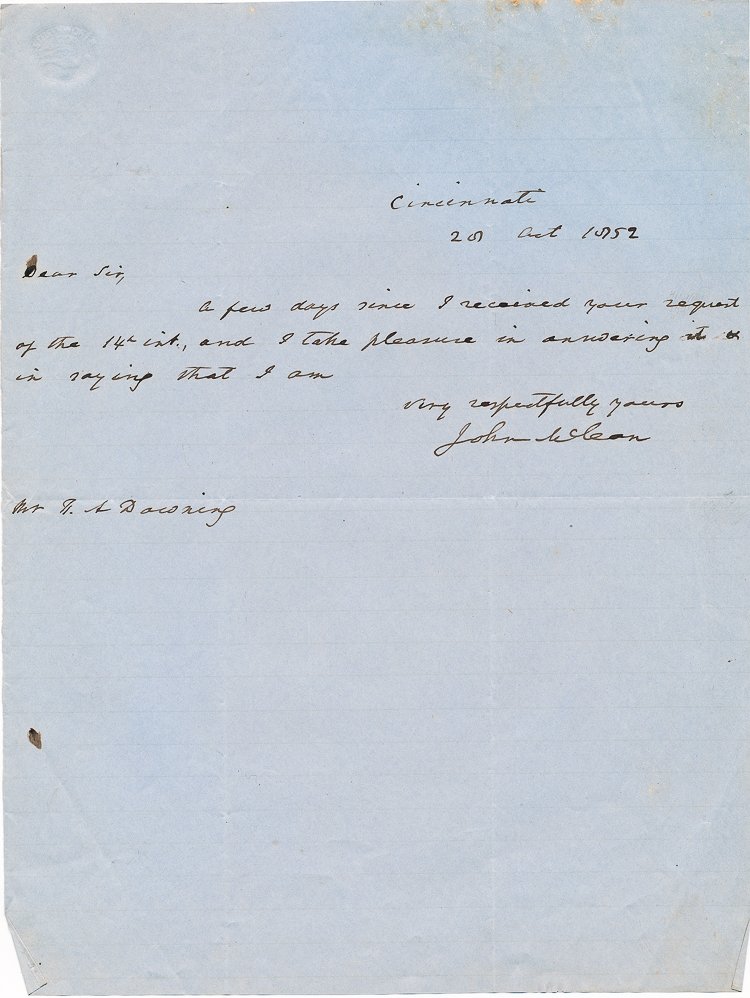 Cincinnati
28 Oct 1852
Dear Sir,
A few days since I received your request
of the 14th inst., and I take pleasure in answering it
in saying that I am
very respectfully yours
John McLean
Mr T. A Downing